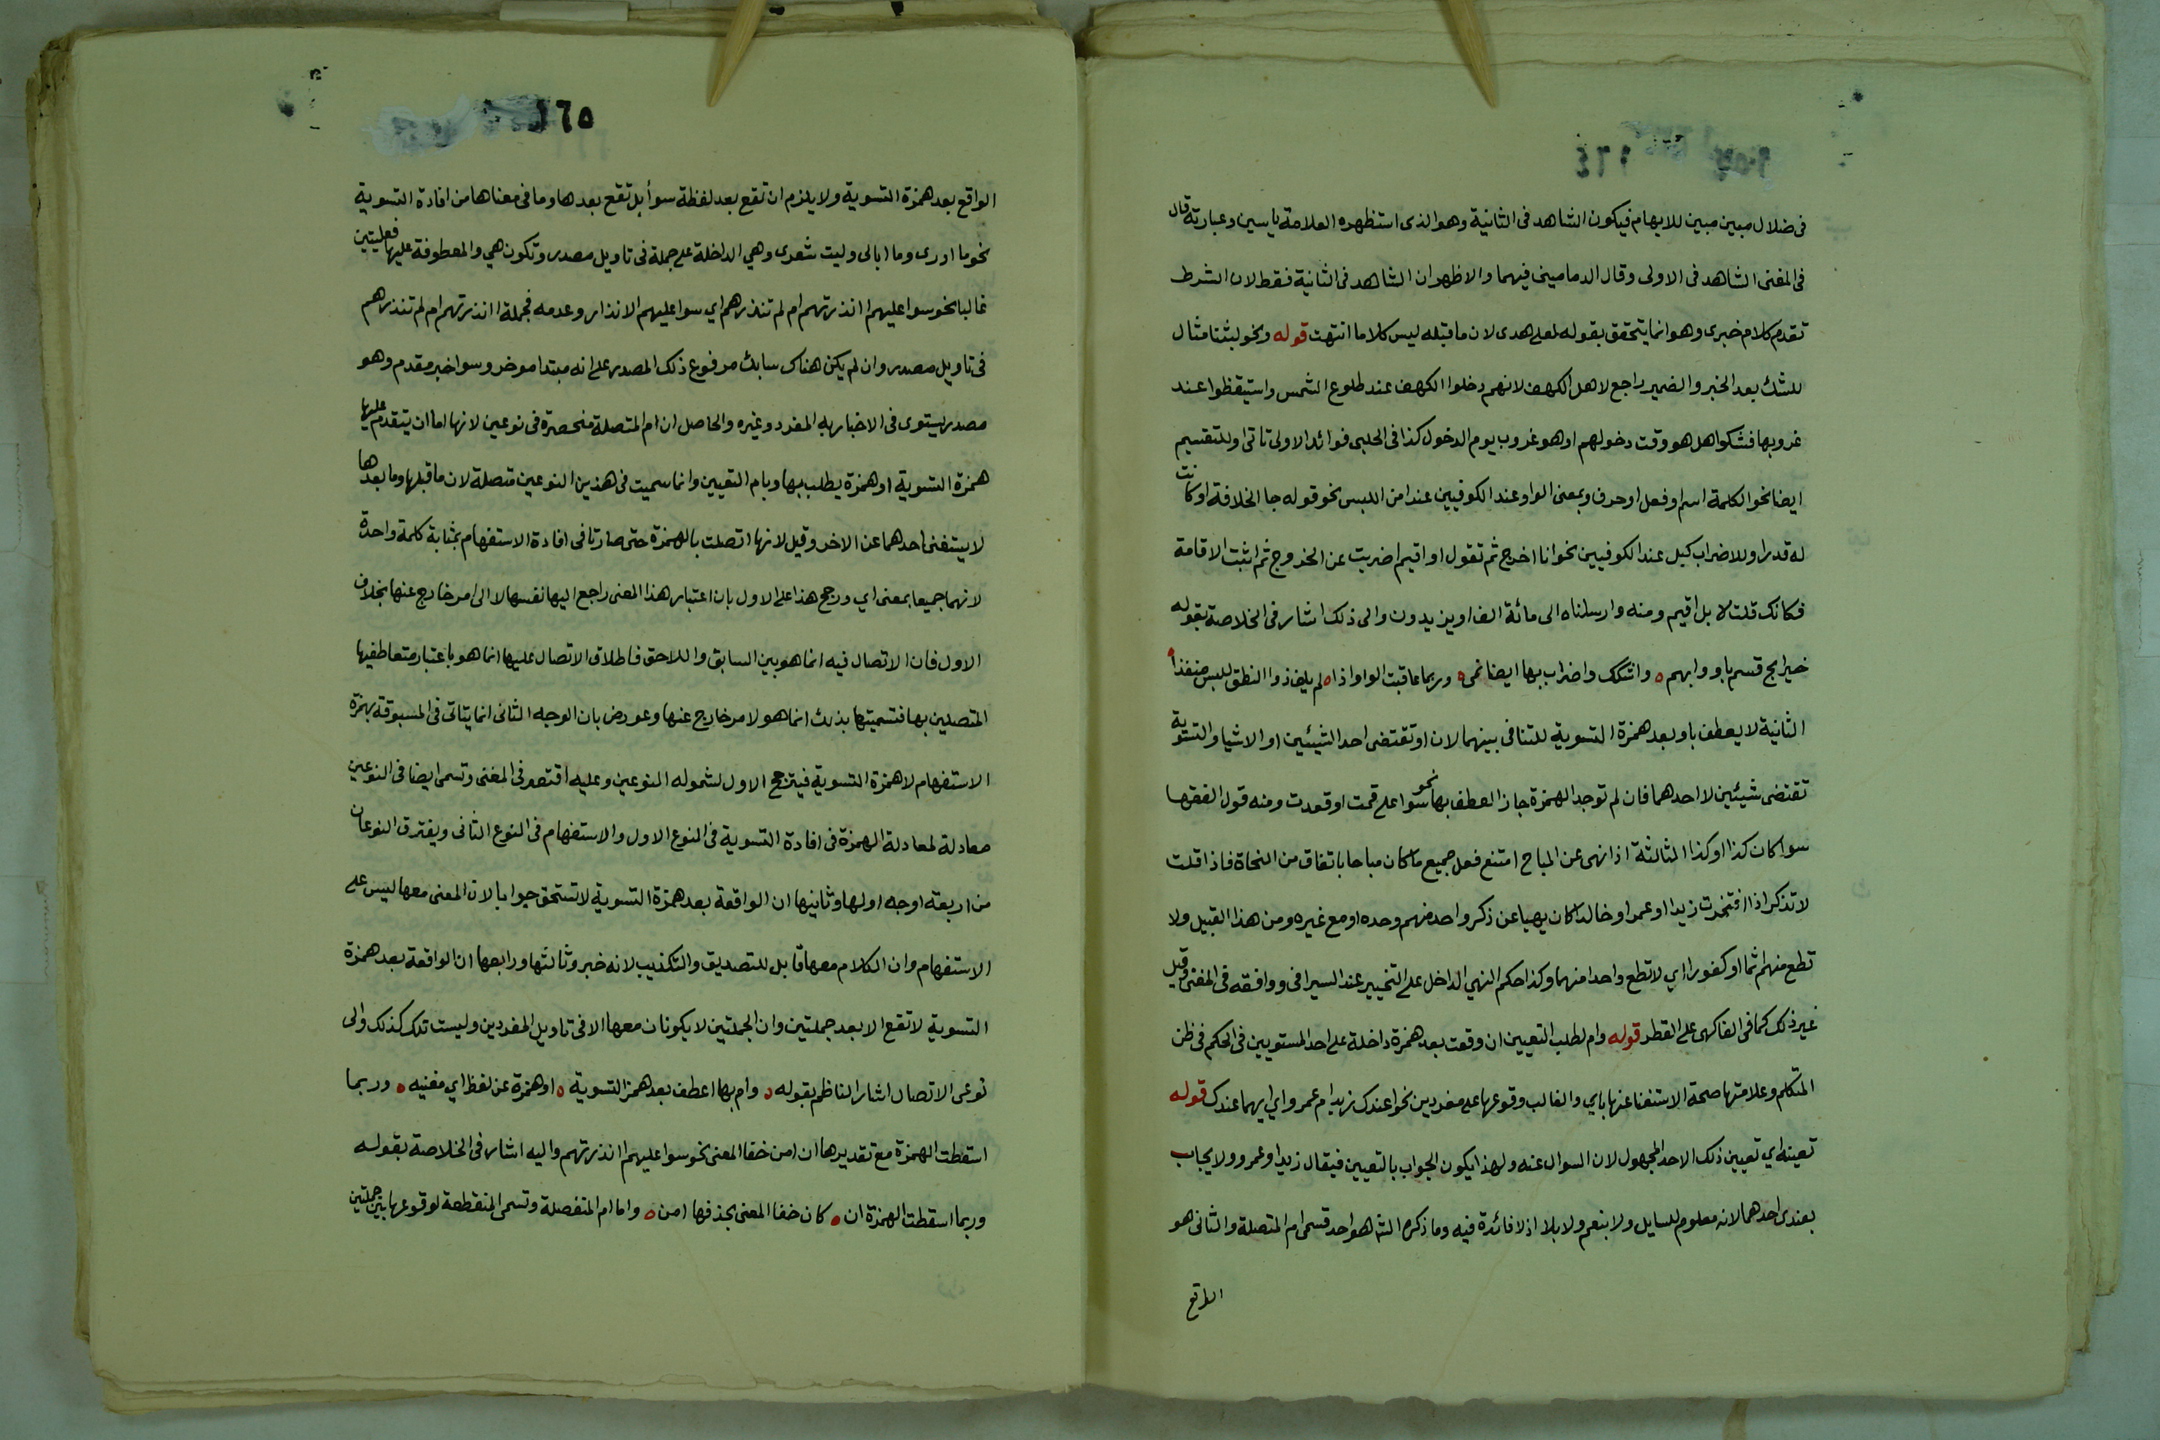 ١٦٤
فى ضلال مبين مبين للابهام فيكون الشاهد فى الثانية وهو الذى استظهره العلامة ياسين وعبارته قال
فى المغنى الشاهد فى الاولى وقال الدمامينى فيهما والاظهر ان الشاهد فى الثانية فقط لان الشرط
تقدم كلام خبرى وهو انما يتحقق بقوله لعلى هدى لان ما قبله ليس كلاما انتهت قوله ونحو لبثنا مثال
للشك بعد الخبر والضمير راجع لاهل الكهف لانهم دخلوا الكهف عند طلوع الشمس واستيقظوا عند
غروبها فشكوا هل هو وقت دخولهم او هو غروب يوم الدخول كذا فى الحلبى فوائد الاولى تاتى او للتقسيم
ايضا نحو الكلمة اسم او فعل او حرف وبمعنى الواو عند الكوفيين عند امن اللبس نحو قوله جا الخلافة او كانت
له قدرا وللاضراب كبل عند الكوفيين نحو انا اخرج ثم تقول او اقيم اضربت عن الخروج ثم اثبت الاقامة
فكانك قلت لا بل اقيم ومنه وارسلناه الى مائة الف او يزيدون والى ذلك اشار فى الخلاصة بقوله
خير ابح قسم باو وابهم ه واشكك واضراب بها ايضا نمى ه وربما عاقبت الواو اذا ه لم يلف ذوا النطق للبس منفذا
الثانية لا يعطف باو بعد همزة التسوية للتنافى بينهما لان او تقتضى احد الشيئين او الاشيا والتسوية
تقتضى شيئين لا احدهما فان لم توجد الهمزة جاز العطف بها نحو سوا على قمت او قعدت ومنه قول الفقها
سوا كان كذا او كذا الثالثة اذا نهى عن المباح امتنع فعل جميع ما كان مباحا باتفاق من النحاة فاذا قلت
لا تذكر اذا افتخرت زيدا او عمرا او خالدا كان نهيا عن ذكر واحد منهم وحده او مع غيره ومن هذا القبيل ولا
تطع منهم اثما او كفورا اي لا تطع واحدا منهما وكذا حكم النهي الداخل على التخيير عند السيرافى ووافقه فى المغنى وقيل
غير ذلك كما فى الفاكهى على القطر قوله وام لطلب التعيين ان وقعت بعد همزة داخلة على احد المستويين فى الحكم فى ظن
المتكلم وعلامتها صحة الاستغنا عنها باي والغالب وقوعها على مفردين نحو اعندك زيد ام عمرو اي ايهما عندك قوله
تعينه اي تعيين ذلك الاحد المجهول لان السوال عنه ولهذا يكون الجواب بالتعيين فيقال زيد او عمرو ولا يجاب
بعندى احدهما لانه معلوم للسايل ولا بنعم ولا بلا اذ لا فائدة فيه وما ذكره الش هو احد قسمى ام المتصلة والثانى هو
الواقع
١٦٥
الواقع بعد همزة التسوية ولا يلزم ان تقع بعد لفظة سوأ بل تقع بعدها وما فى معناها من افادة التسوية
نحو ما ادرى وما ابالى وليت شعرى وهي الداخلة على جملة فى تاويل مصدر وتكون هي والمعطوفة عليها فعليتين
غالبا نحو سوا عليهم اانذرتهم ام لم تنذرهم اي سوا عليهم الانذار وعدمه فجملة اانذرتهم ام لم تنذرهم
فى تاويل مصدر وان لم يكن هناك سابك مرفوع ذلك المصدر على انه مبتدا موخر وسوا خبر مقدم وهو
مصدر يستوى فى الاخبار به المفرد وغيره والحاصل ان ام المتصلة منحصرة فى نوعين لانها اما ان يتقدم عليها
همزة التسوية او همزة يطلب بها وبام التعيين وانما سميت فى هذين النوعين متصلة لان ما قبلها وما بعدها
لا يستغنى احدهما عن الاخر وقيل لانها اتصلت بالهمزة حتى صارتا فى افادة الاستفهام بمثابة كلمة واحدة
لانهما جميعا بمعنى اي ورجح هذا على الاول بان اعتبار هذا المعنى راجع اليها نفسها لا الى امر خارج عنها بخلاف
الاول فان الاتصال فيه انما هو بين السابق واللاحق فاطلاق الاتصال عليها انما هو باعتبار متعاطفيها
المتصلين بها فتسميتها بذلك انما هو لامر خارج عنها وعورض بان الوجه الثانى انما يتاتى فى المسبوقة بهمزة
الاستفهام لا همزة التسوية فيترجح الاول لشموله النوعين وعليه اقتصر فى المغنى وتسمى ايضا فى النوعين
معادلة لمعادلة الهمزة فى افادة التسوية فى النوع الاول والاستفهام فى النوع الثانى ويفترق النوعان
من اربعة اوجه اولها وثانيها ان الواقعة بعد همزة التسوية لا تستحق جوابا لان المعنى معها ليس على
الاستفهام وان الكلام معها قابل للتصديق والتكذيب لانه خبر وثالثها ورابعها ان الواقعة بعد همزة
التسوية لا تقع الا بعد جملتين وان الجملتين لا يكونان معها الا فى تاويل المفردين وليست تلك كذلك والى
نوعى الاتصال اشار الناظم بقوله ه وام بها اعطف بعد همز التسوية ه او همزة عن لفظ اي مغنيه ه وربما
اسقطت الهمزة مع تقديرها ان امن خفا المعنى نحو سوا عليهم انذرتهم واليه اشار فى الخلاصة بقوله
وربما اسقطت الهمزة ان ه كان خفا المعنى بحذفها امن ه واما ام المنفصلة وتسمى المنقطعة لوقوعها بين جملتين